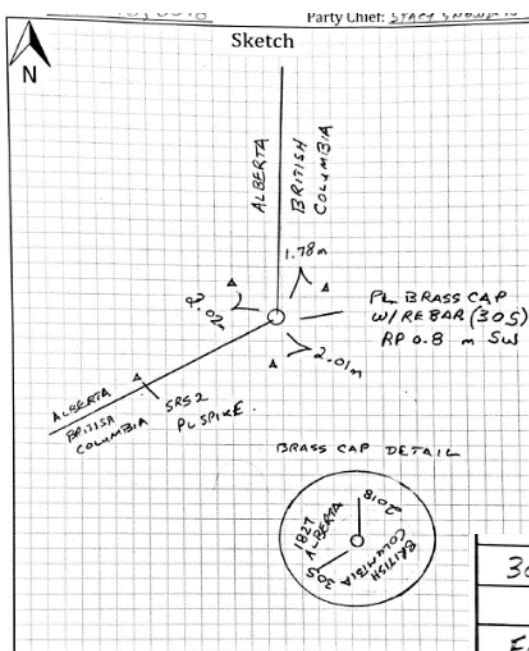 Party Chief: STACY
Sketch
N
ALBERTA
BRITISH
COLUMBIA
1.78 m
2.02m
2.01m
PL BRASS CAP
W/ REBAR (30S)
RP 0.8 m SW
ALBERTA
BRITISH
COLUMBIA
SRS2
PL SPIKE.
BRASS CAP DETAIL
1827
ALBERTA
2018
BRITISH
COLUMBIA
30S